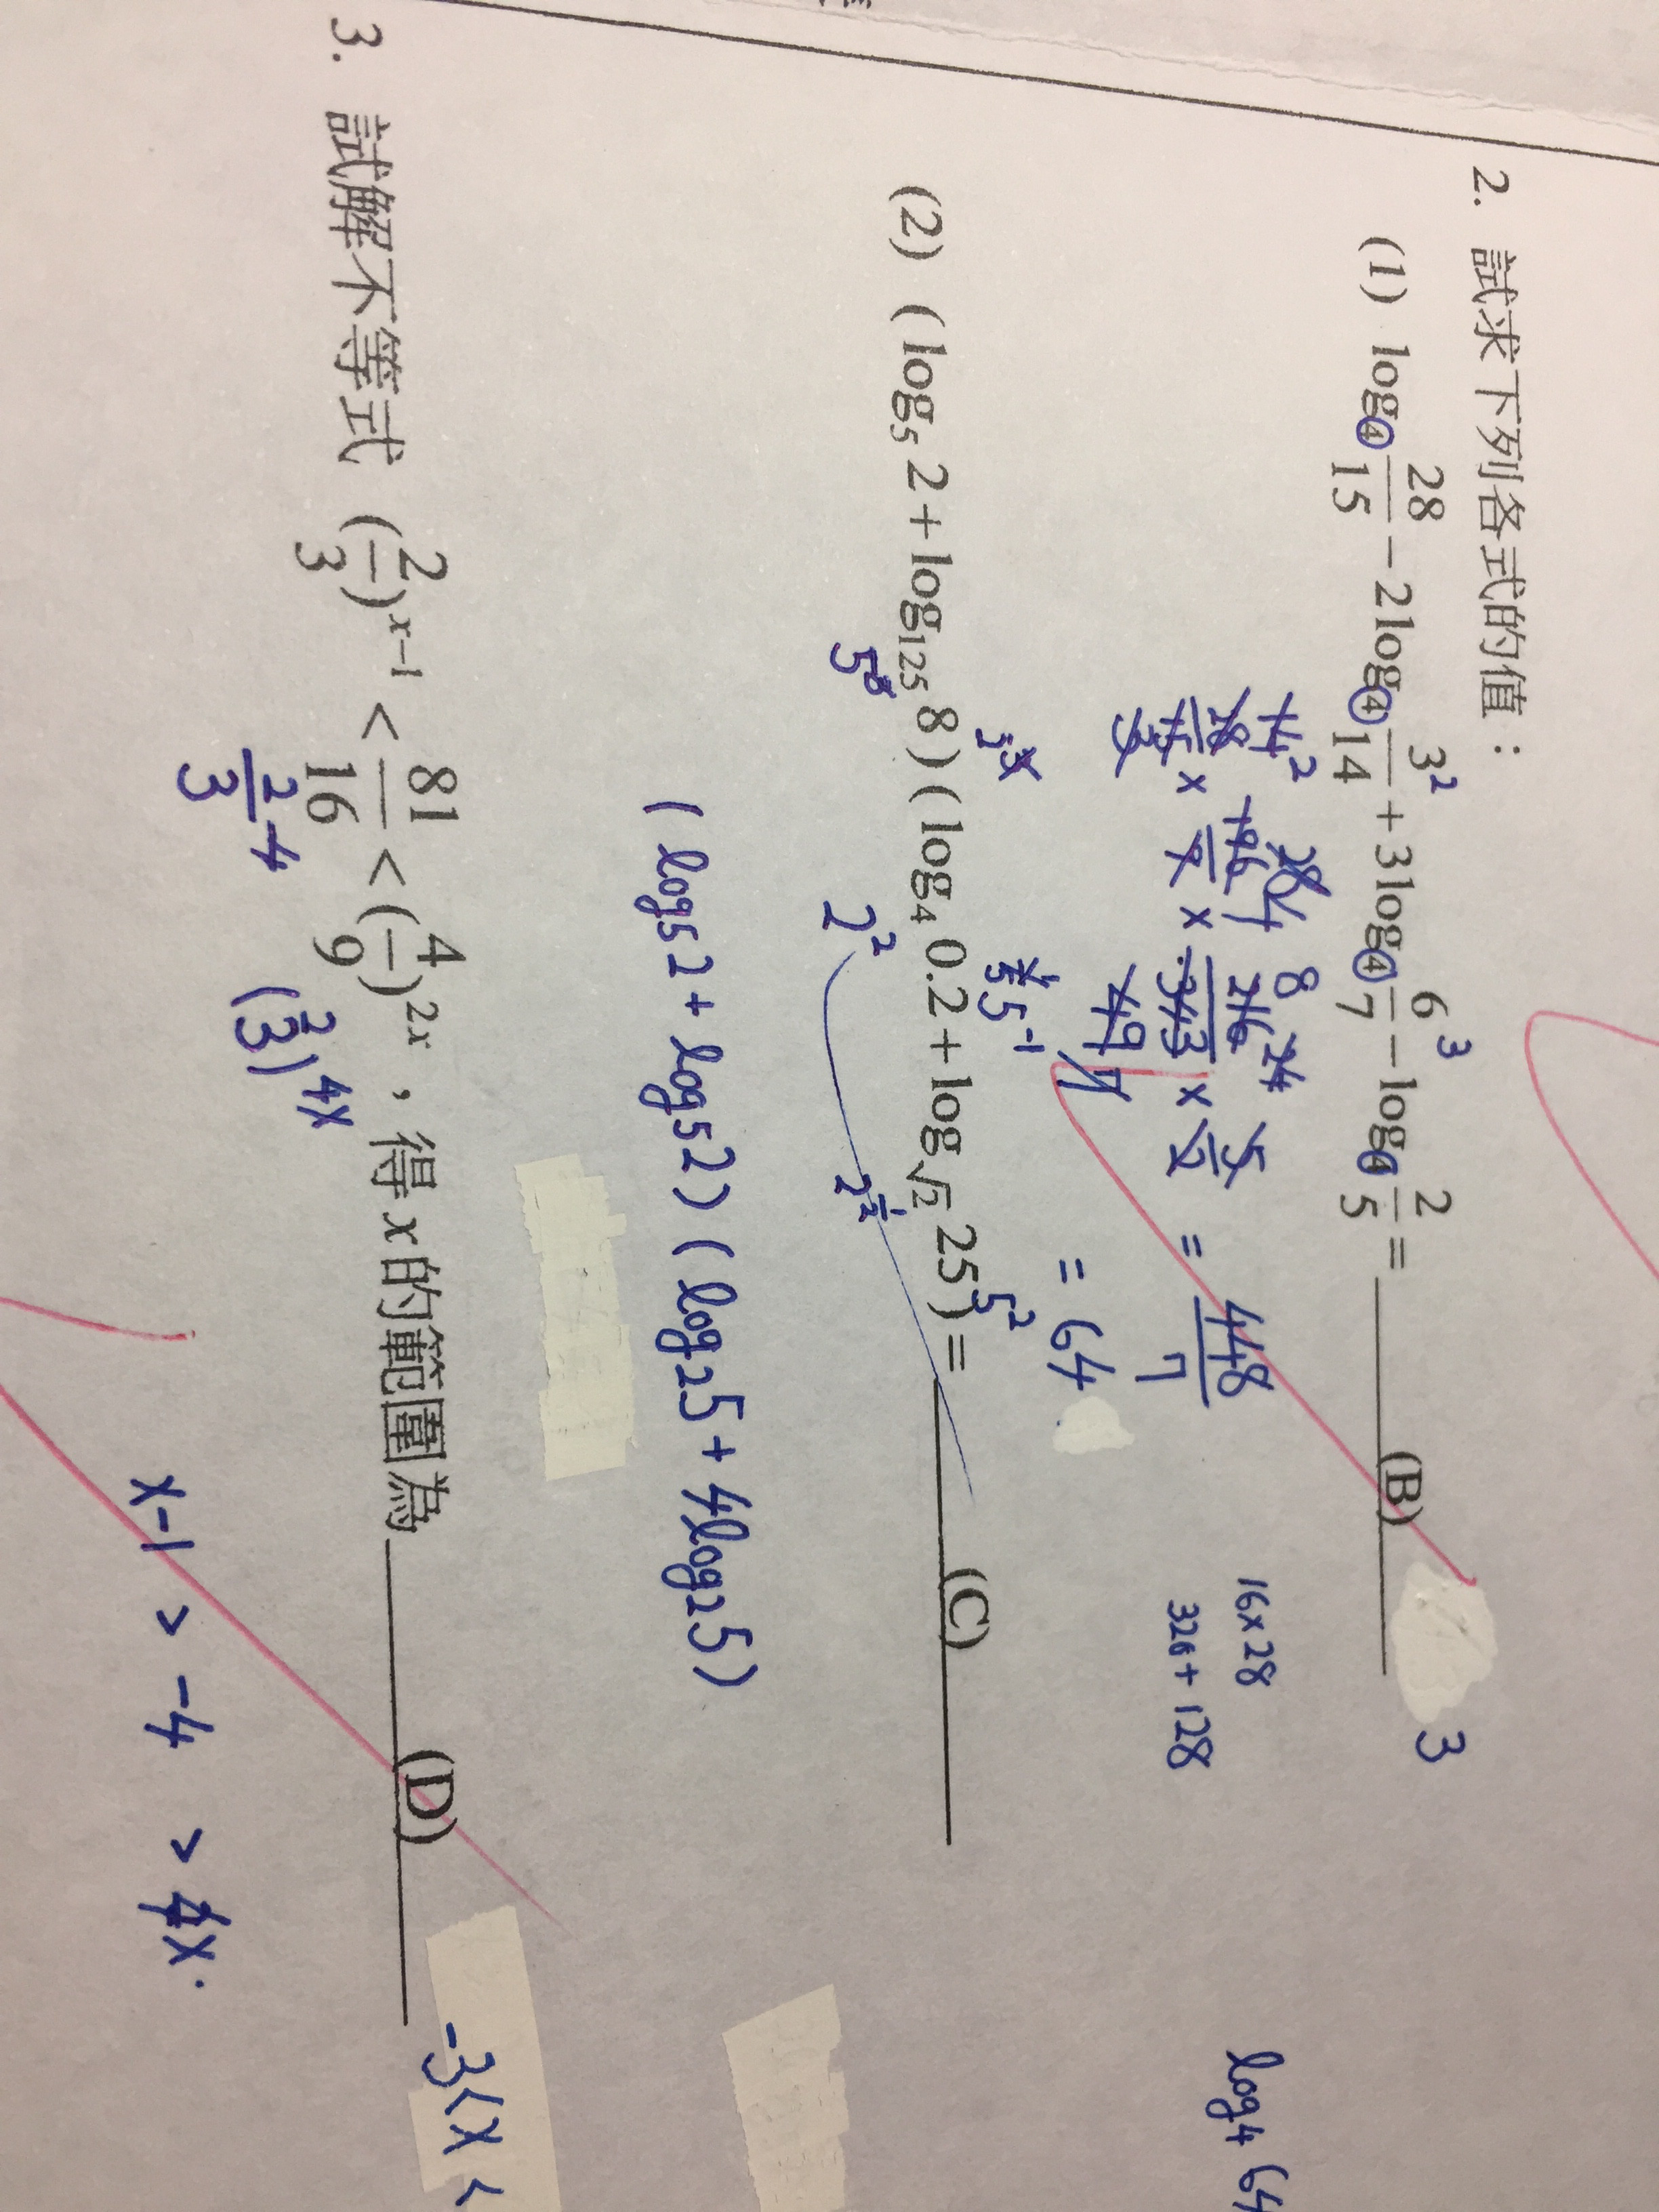 2. 試求下列各式的值：
(1) log₄ 28/15 − 2log₄ 3/14 + 3log₄ 6/7 − log₄ 2/5 = (B) 3
3² 6³
28/15 × 196/9 × 216/343 × 5/2 = 448/7
= 64
16×28
320+128
log₄ 64
(2) (log₅ 2 + log₁₂₅ 8)(log₄ 0.2 + log√2 25) = (C)
5³ 2³ 2² 1/5 5⁻¹ 2^(1/2) 5²
(log₅2 + log₅2)(log₂5 + 4log₂5)
3. 試解不等式 (2/3)^(x−1) < 81/16 < (4/9)^(2x)，得 x 的範圍為 (D)
-3<x<
2/3 -4 (2/3)^4x
x-1 > -4 > 4x